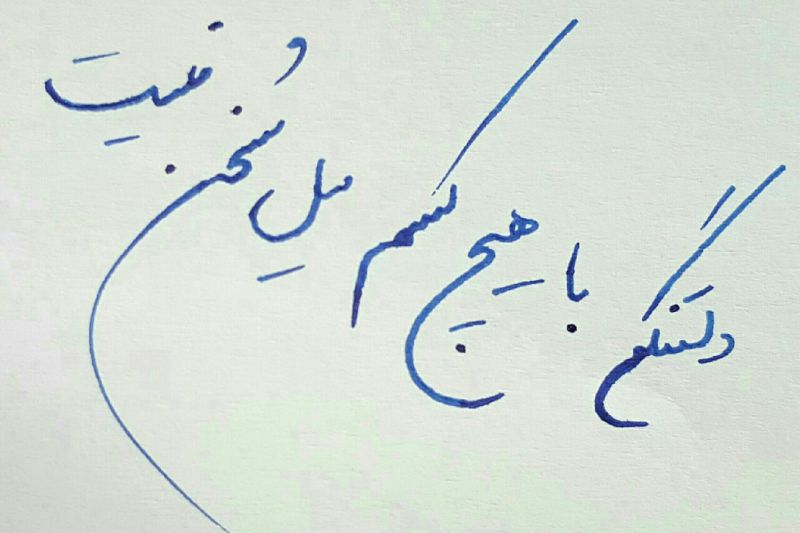 دلتنگم با هیچ کسم میل سُخن نیست